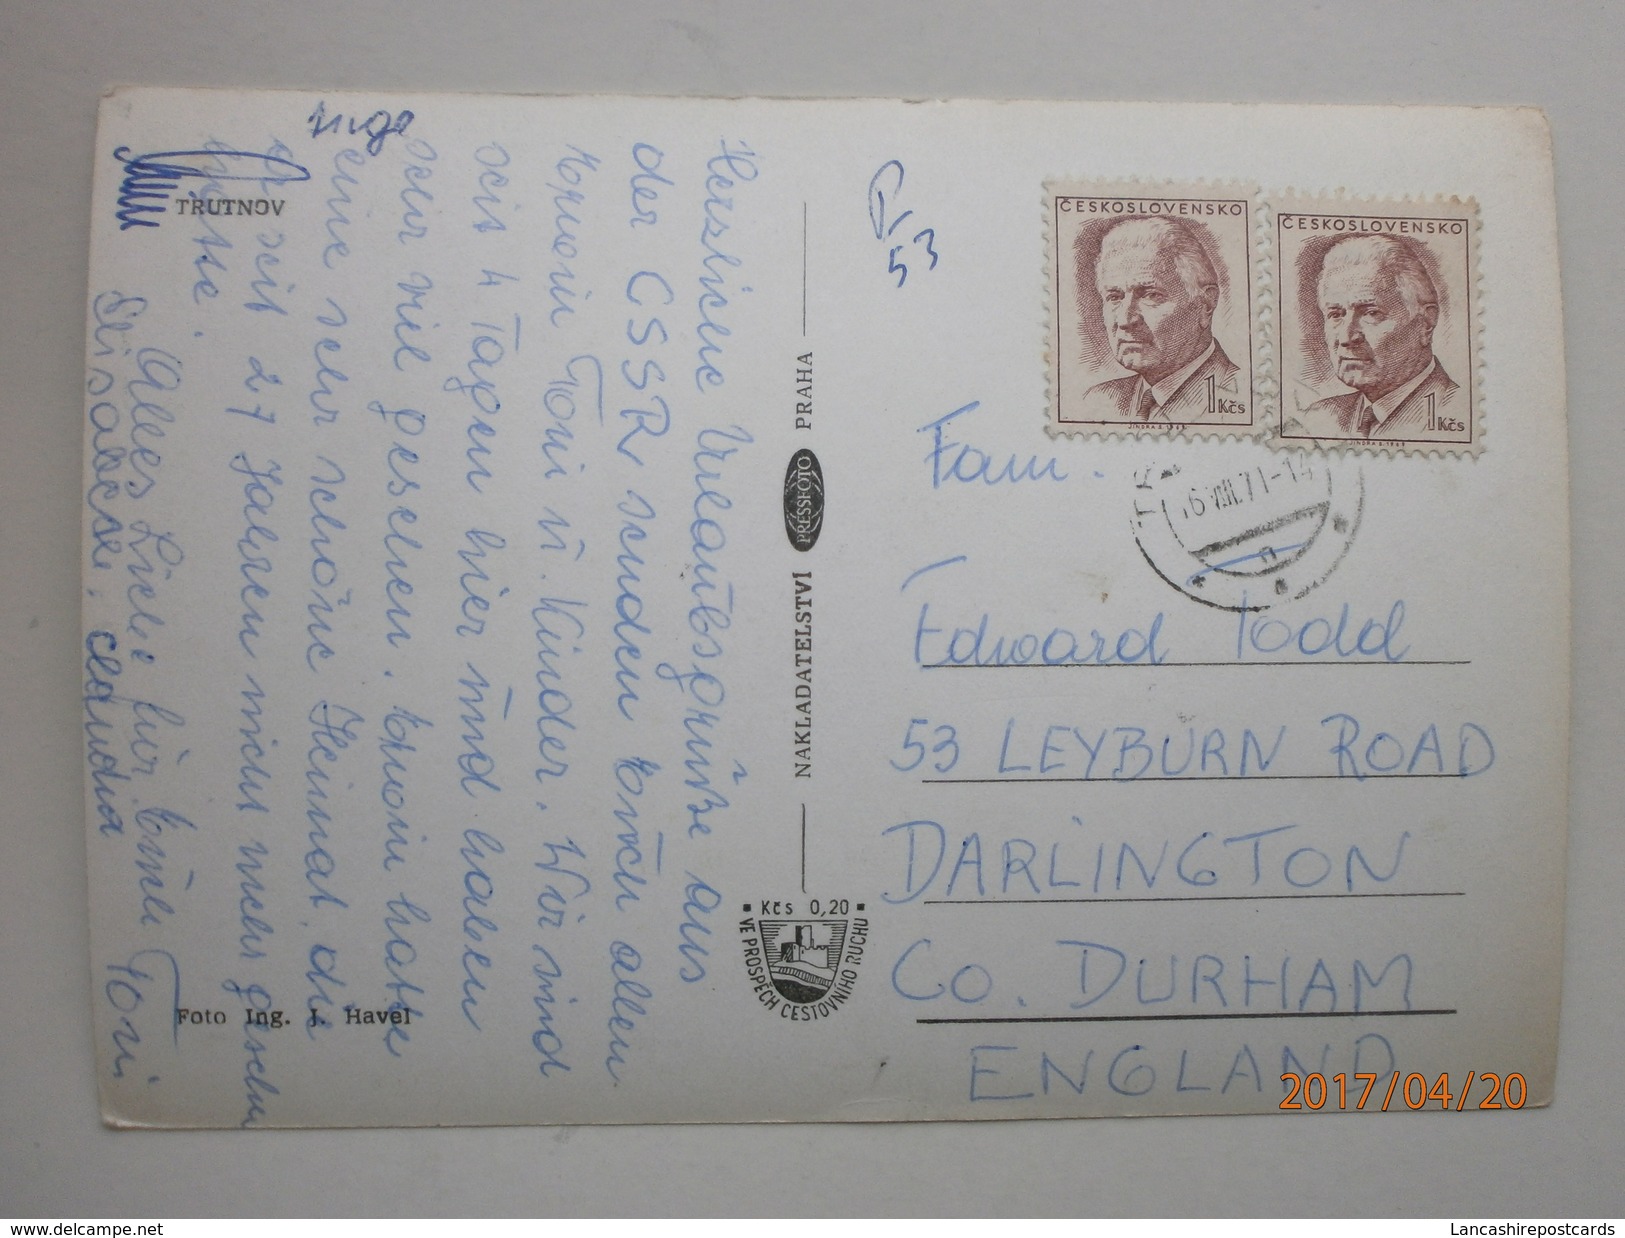 TRUTNOV
Herzliche Urlaubsgrüße aus
der CSSR, senden Erwin allen
Erwin Toni u. Kinder. Wir sind
seit 4 Tagen hier und haben
sehr viel gesehen. Erwin hatte
eine sehr schöne Heimat, die
Er seit 27 Jahren nicht mehr gesehen
hatte.
Alles Liebe für Toni
Elisabeth. Claudia
Inge
Foto Ing. J. Havel
NAKLADATELSTVÍ PRESSFOTO PRAHA
Kčs 0,20
VE PROSPĚCH CESTOVNÍHO RUCHU
53
ČESKOSLOVENSKO
1 Kčs
JINDRA S. 1968
ČESKOSLOVENSKO
1 Kčs
JINDRA S. 1968
VIII.71-14
Fam.
Edward Todd
53 LEYBURN ROAD
DARLINGTON
CO. DURHAM
ENGLAND
2017/04/20
http://www.delcampe.net
Lancashirepostcards